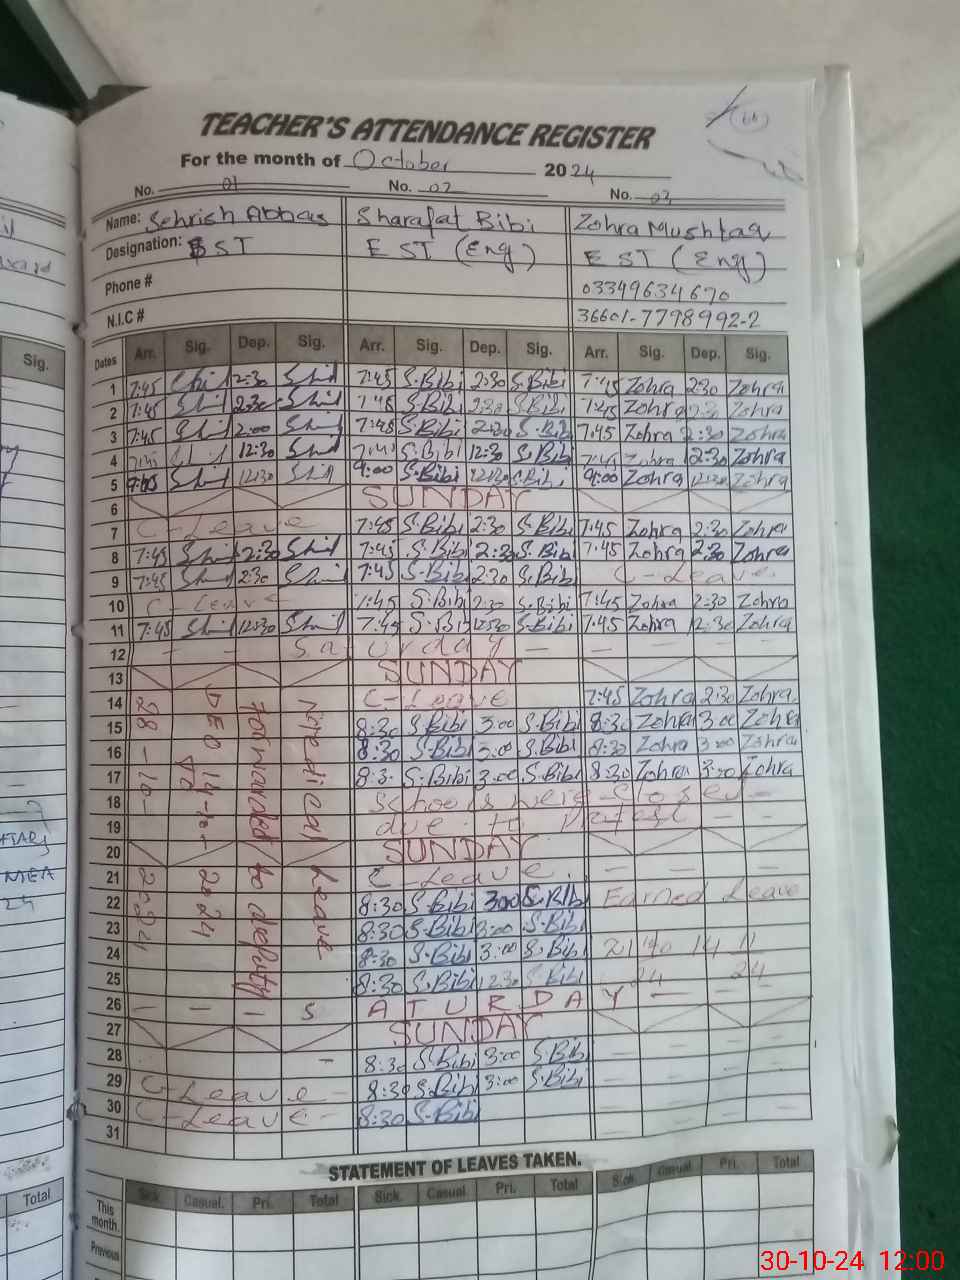 TEACHER'S ATTENDANCE REGISTER
For the month of October 2024
No. 01 No. 02 No. 03
Name: Sehrish Abbas Sharafat Bibi Zohra Mushtaq
Designation: SST EST (Eng) EST (Eng)
Phone # 03349634670
N.I.C # 36601-7798992-2
Sig. Dates Arr. Sig. Dep. Sig. Arr. Sig. Dep. Sig. Arr. Sig. Dep. Sig.
1 7:45 2:30 7:45 S.Bibi 2:30 S.Bibi 7:45 Zohra 2:30 Zohra
2 7:45 2:30 7:45 S.Bibi 2:30 S.Bibi 7:45 Zohra 2:30 Zohra
3 7:45 2:00 7:45 S.Bibi 2:30 S.Bibi 7:45 Zohra 2:30 Zohra
4 12:30 S.Bibi 12:30 S.Bibi 7:45 Zohra 2:30 Zohra
5 9:00 12:30 9:00 S.Bibi 12:30 S.Bibi 9:00 Zohra 12:30 Zohra
6 SUNDAY
7 C-Leave 7:45 S.Bibi 2:30 S.Bibi 7:45 Zohra 2:30 Zohra
8 7:45 2:30 7:45 S.Bibi 2:30 S.Bibi 7:45 Zohra 2:30 Zohra
9 7:45 2:30 7:45 S.Bibi 2:30 S.Bibi C-Leave.
10 C-Leave 7:45 S.Bibi 2:30 S.Bibi 7:45 Zohra 2:30 Zohra
11 7:45 12:30 7:45 S.Bibi 12:30 S.Bibi 7:45 Zohra 12:30 Zohra
12 - - Saturday - - - -
13 SUNDAY
14 C-Leave 7:45 Zohra 2:30 Zohra
15 8:30 S.Bibi 3:00 S.Bibi 8:30 Zohra 3:00 Zohra
16 8:30 S.Bibi 3:00 S.Bibi 8:30 Zohra 3:00 Zohra
17 8:30 S.Bibi 3:00 S.Bibi 8:30 Zohra 3:00 Zohra
18 Schools were closed -
19 due to - -
20 SUNDAY
21 C-Leave. - - - -
22 8:30 S.Bibi 3:00 S.Bibi Earned Leave
23 8:30 S.Bibi 3:00 S.Bibi
24 8:30 S.Bibi 3:00 S.Bibi
25 8:30 S.Bibi 12:30 S.Bibi 24 24
26 - - S A T U R D A Y - -
27 SUNDAY
28 - 8:30 S.Bibi 3:00 S.Bibi - - - -
29 C-Leave - 8:30 S.Bibi 3:00 S.Bibi - - - -
30 C-Leave - 8:30 S.Bibi - - - -
31
Medical Leave
forwarded to deputy
DEO 14-10-2024
to
28-10-2024
STATEMENT OF LEAVES TAKEN.
Total Sick. Casual. Pri. Total Sick. Casual Pri. Total Sick Casual Pri. Total
This month.
Previous
30-10-24 12:00